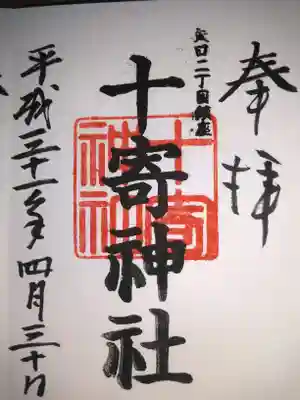 奉拝
矢口二丁目鎮座
十寄神社
十寄
神社
平成三十一年四月三十日